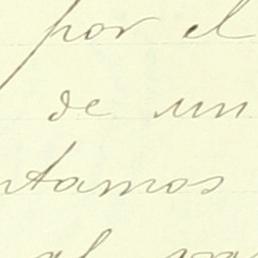 por el
de un
ntamos
al